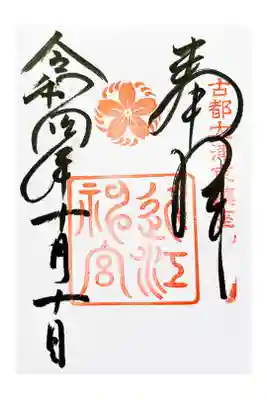 古都大津京鎮座
奉拝
近江
神宮
令和四年十月十日